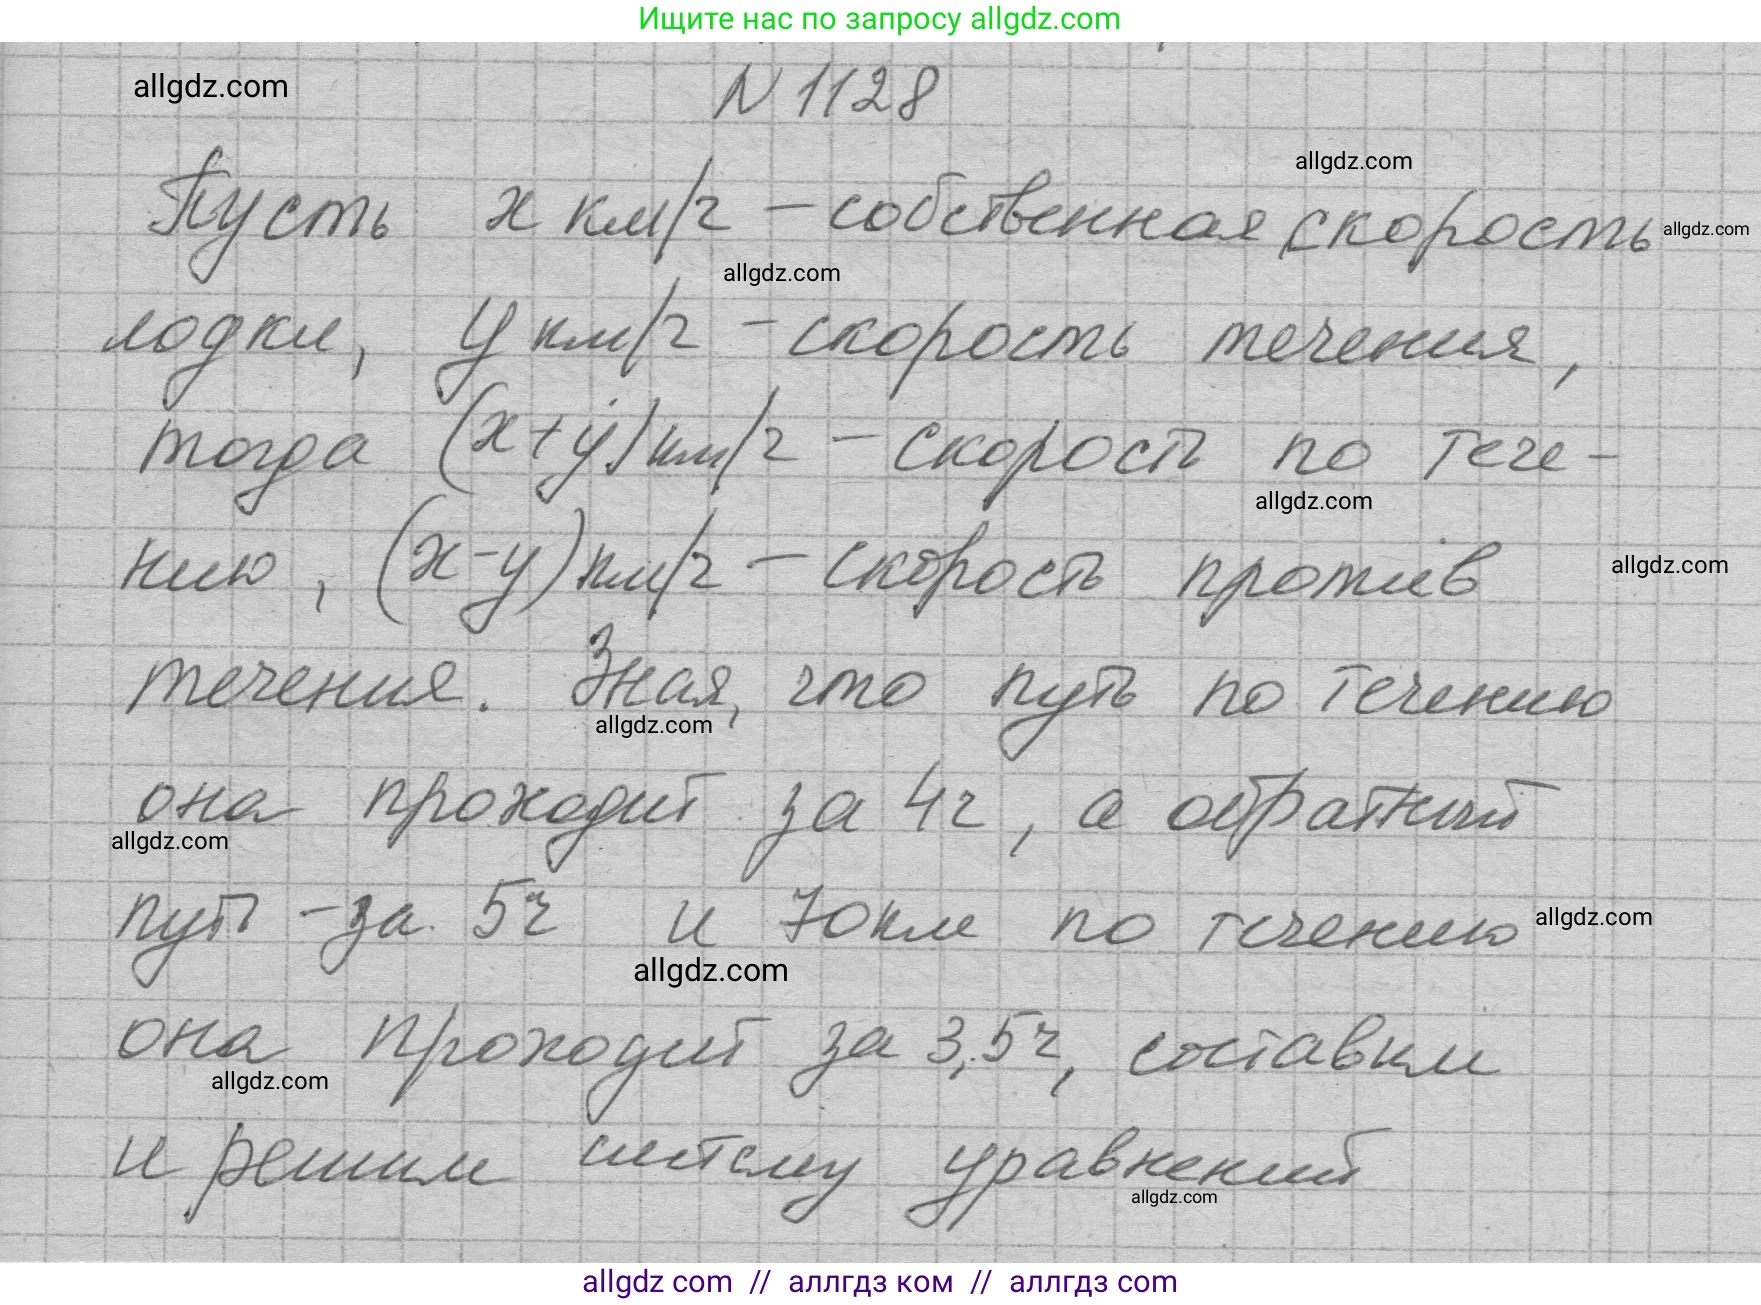 Ищите нас по запросу allgdz.com
allgdz.com
N 1128
allgdz.com
Пусть x км/ч – собственная скорость
allgdz.com
allgdz.com
лодки, y км/ч – скорость течения,
тогда (x+y) км/ч – скорость по тече-
allgdz.com
нию, (x-y) км/ч – скорость против
allgdz.com
течения. Зная, что путь по течению
allgdz.com
она проходит за 4ч, а обратный
allgdz.com
путь – за 5ч и 70км по течению
allgdz.com
allgdz.com
она проходит за 3,5ч, составим
allgdz.com
и решим систему уравнений
allgdz.com
allgdz com // аллгдз ком // аллгдз com